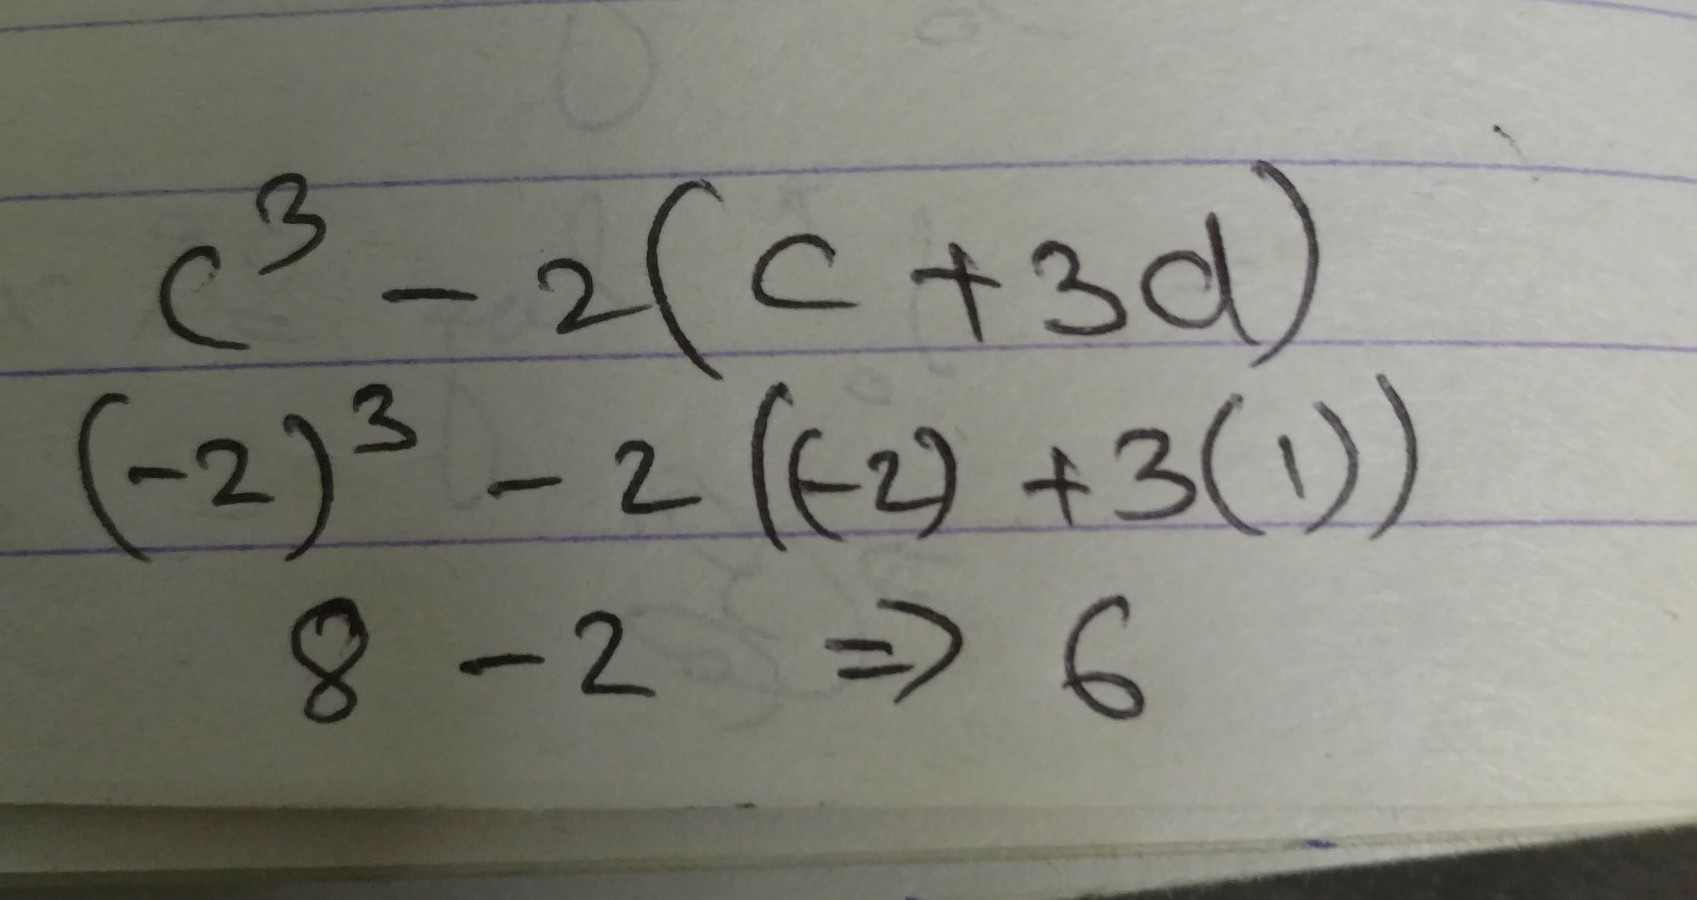 c³ - 2(c + 3d)
(-2)³ - 2((-2) + 3(1))
8 - 2 ⇒ 6